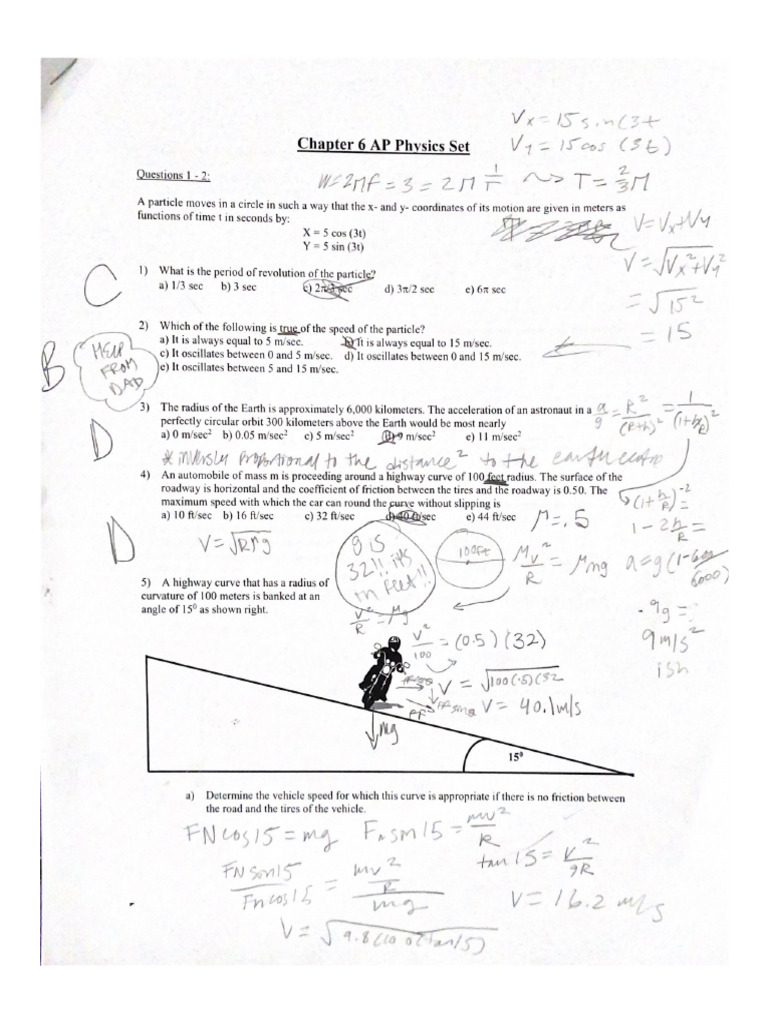 Vx = 15 sin(3t
Chapter 6 AP Physics Set
Vy = 15 cos (3t)
Questions 1 - 2:
W = 2πf = 3 = 2π 1/T ~> T = 2/3 π
A particle moves in a circle in such a way that the x- and y- coordinates of its motion are given in meters as
functions of time t in seconds by:
X = 5 cos (3t)
Y = 5 sin (3t)
V = Vx + Vy
V = √Vx² + Vy²
= √15²
= 15
C
1) What is the period of revolution of the particle?
a) 1/3 sec b) 3 sec c) 2π/3 sec d) 3π/2 sec e) 6π sec
B
HELP
FROM
DAD
2) Which of the following is true of the speed of the particle?
a) It is always equal to 5 m/sec. b) It is always equal to 15 m/sec.
c) It oscillates between 0 and 5 m/sec. d) It oscillates between 0 and 15 m/sec.
e) It oscillates between 5 and 15 m/sec.
D
3) The radius of the Earth is approximately 6,000 kilometers. The acceleration of an astronaut in a
perfectly circular orbit 300 kilometers above the Earth would be most nearly
a) 0 m/sec² b) 0.05 m/sec² c) 5 m/sec² d) 9 m/sec² e) 11 m/sec²
a/g = R²/(R+h)² = 1/(1+h/R)²
* inversly proportional to the distance² to the earth
(1+h/R)⁻²
1 - 2h/R =
a = g(1-600/6000)
.9g =
9 m/s²
ish
D
4) An automobile of mass m is proceeding around a highway curve of 100 feet radius. The surface of the
roadway is horizontal and the coefficient of friction between the tires and the roadway is 0.50. The
maximum speed with which the car can round the curve without slipping is
a) 10 ft/sec b) 16 ft/sec c) 32 ft/sec d) 40 ft/sec e) 44 ft/sec
μ = .5
V = √Rμg
g is
32!! its
in feet!!
100ft
Mv²/R = μmg
v²/R = μg
v²/100 = (0.5)(32)
V = √100(.5)(32
V = 40.1m/s
5) A highway curve that has a radius of
curvature of 100 meters is banked at an
angle of 15⁰ as shown right.
mg
15⁰
a) Determine the vehicle speed for which this curve is appropriate if there is no friction between
the road and the tires of the vehicle.
FN cos 15 = mg
Fn sin 15 = mv²/R
FN sin 15/Fn cos 15 = mv²/R/mg
tan 15 = v²/gR
V = 16.2 m/s
V = √9.8(100)(tan 15)